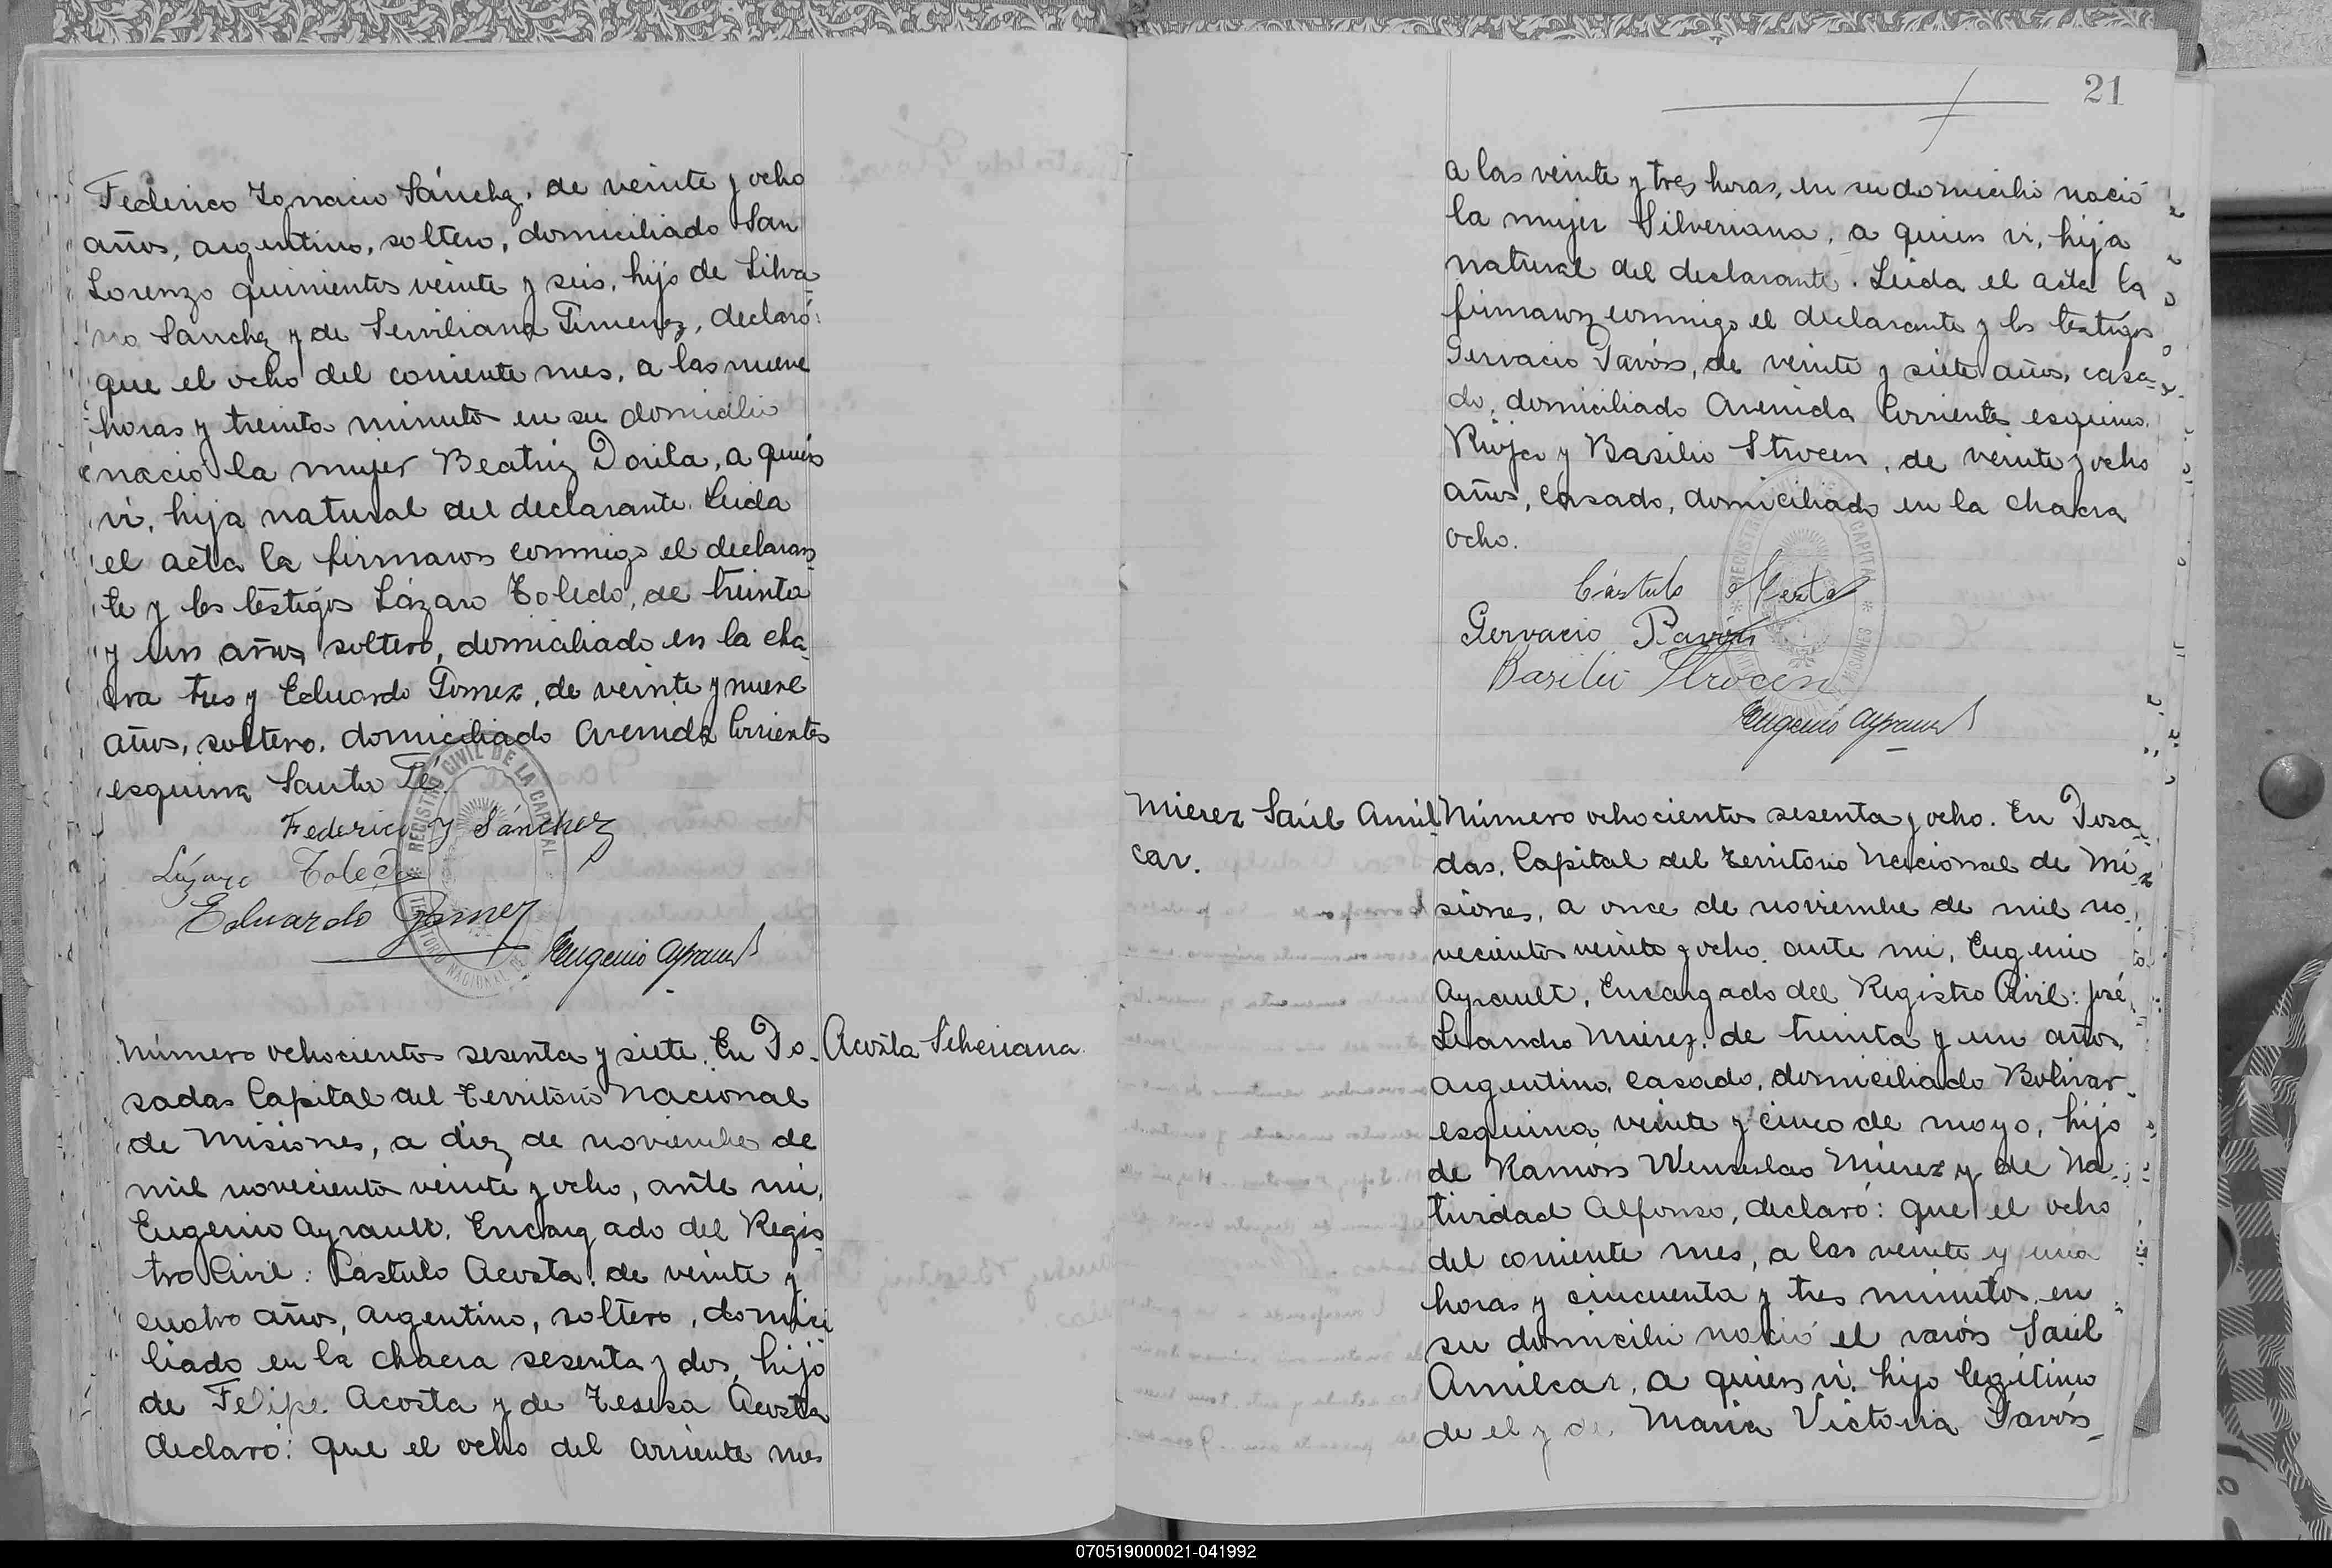 Federico Ignacio Sánchez, de veinte y ocho
años, argentino, soltero, domiciliado San
Lorenzo quinientos veinte y seis, hijo de Silva-
no Sanchez y de Serviliana Gimenez, declaró:
que el ocho del corriente mes, a las nueve
horas y treinta minutos en su domicilio
nació la mujer Beatriz Dorila, a quien
vi, hija natural del declarante. Leida
el acta la firmaron conmigo el declaran-
te y los testigos Lázaro Toledo, de treinta
y un años soltero, domiciliado en la cha-
cra tres y Eduardo Gomez, de veinte y nueve
años, soltero, domiciliado Avenida Corrientes
esquina Santa Fé.
Federico Y Sánchez
Lázaro Toledo
Eduardo Gomez
Eugenio Ayrault
REGISTRO CIVIL DE LA CAPITAL
TERRITORIO NACIONAL DE
Acosta Silveriana
Número ochocientos sesenta y siete. En Po-
sadas Capital del Territorio Nacional
de Misiones, a diez de noviembre de
mil novecientos veinte y ocho, ante mi,
Eugenio Ayrault, Encargado del Regis-
tro Civil: Cástulo Acosta, de veinte y
cuatro años, argentino, soltero, domici
liado en la chacra sesenta y dos, hijo
de Felipe Acosta y de Teresa Acosta
declaró: que el ocho del corriente mes
21
a las veinte y tres horas, en su domicilio nació
la mujer Silveriana, a quien vi, hija
natural del declarante. Leida el acta la
firmaron conmigo el declarante y los testigos
Gervacio Pavón, de veinte y siete años, casa-
do, domiciliado Avenida Corrientes esquina
Rioja y Basilio Strocen, de veinte y ocho
años, casado, domiciliado en la chacra
ocho.
Cástulo
Gervacio Pavón
Basilio Strocen
Eugenio Ayrault
REGISTRO CAPITAL
MISIONES
Mierez Saúl Amil-
car.
Número ochocientos sesenta y ocho. En Posa-
das, Capital del Territorio Nacional de Mi-
siones, a once de noviembre de mil no-
vecientos veinte y ocho, ante mi, Eugenio
Ayrault, Encargado del Registro Civil: José
Leandro Mierez, de treinta y un años,
argentino, casado, domiciliado Bolivar
esquina veinte y cinco de mayo, hijo
de Ramón Wenseslao Mierez y de Na-
tividad Alfonso, declaró: que el ocho
del corriente mes, a las veinte y una
horas y cincuenta y tres minutos, en
su domicilio nació el varón Saúl
Amilcar, a quien vi, hijo legítimo
de el y de Maria Victoria Pavón
070519000021-041992